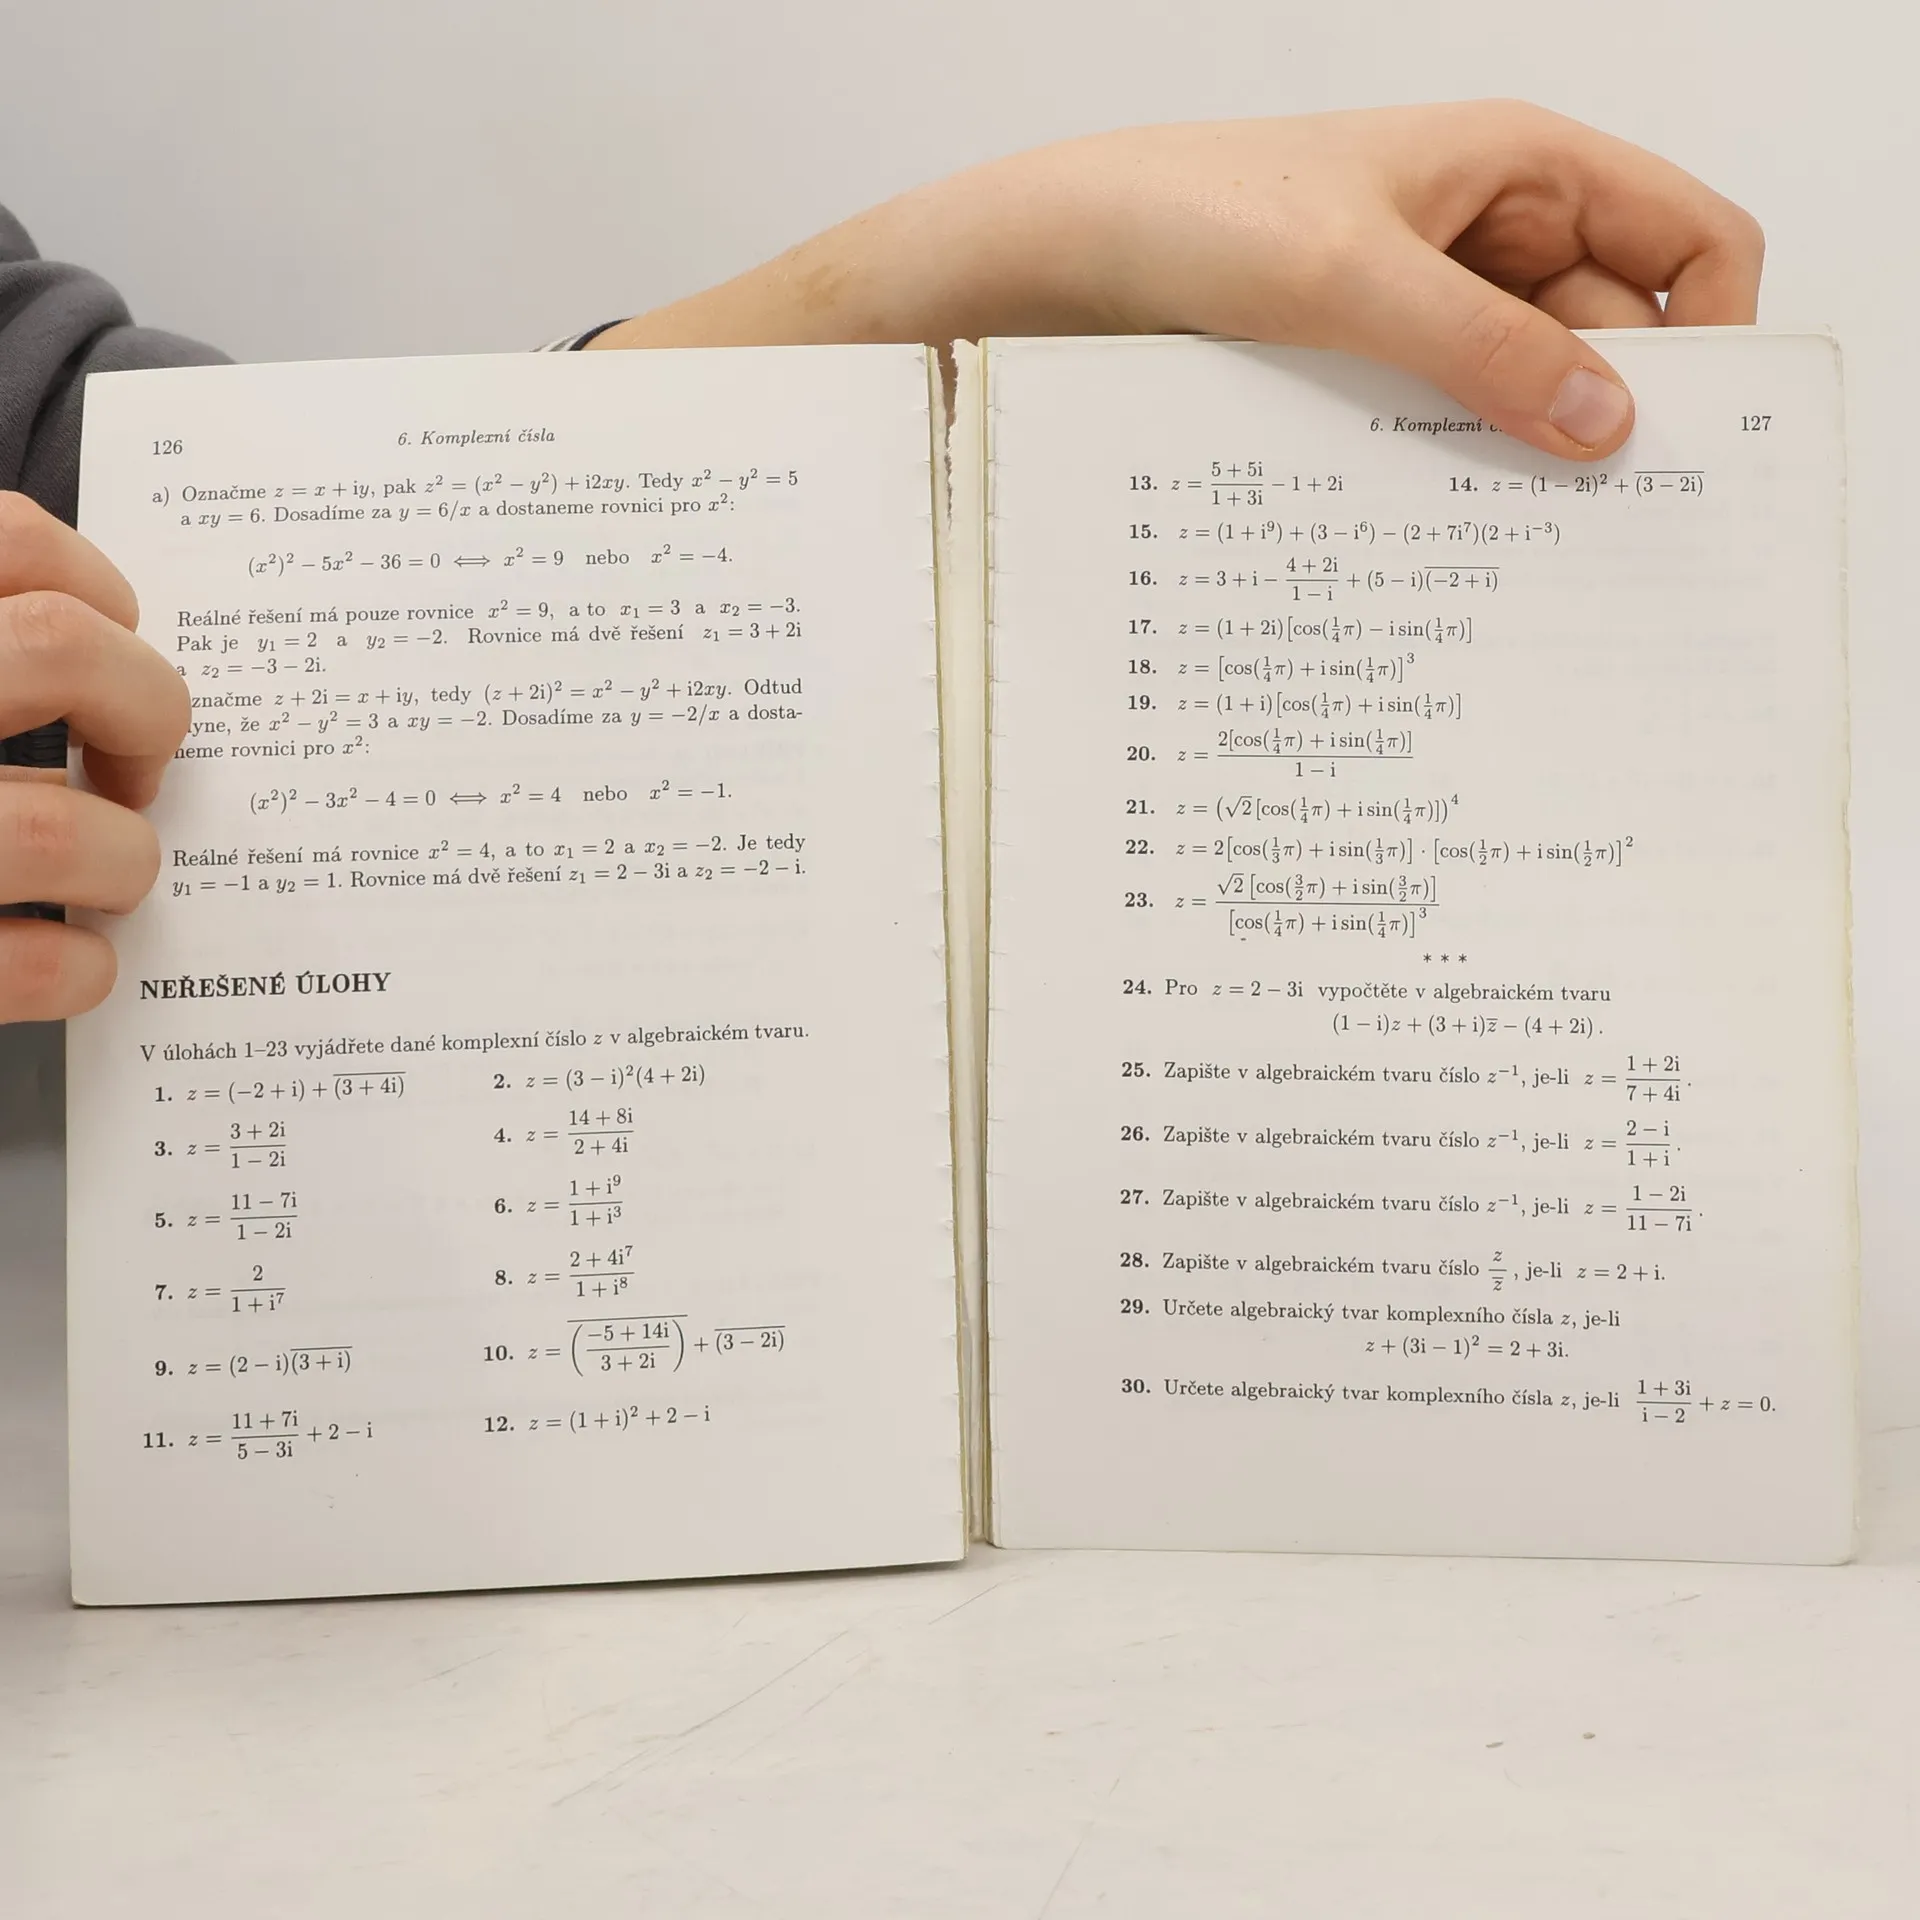 126
6. Komplexní čísla
a) Označme z = x + iy, pak z² = (x² − y²) + i2xy. Tedy x² − y² = 5
a xy = 6. Dosadíme za y = 6/x a dostaneme rovnici pro x²:
(x²)² − 5x² − 36 = 0 ⟺ x² = 9 nebo x² = −4.
Reálné řešení má pouze rovnice x² = 9, a to x₁ = 3 a x₂ = −3.
Pak je y₁ = 2 a y₂ = −2. Rovnice má dvě řešení z₁ = 3 + 2i
a z₂ = −3 − 2i.
značme z + 2i = x + iy, tedy (z + 2i)² = x² − y² + i2xy. Odtud
yne, že x² − y² = 3 a xy = −2. Dosadíme za y = −2/x a dosta-
neme rovnici pro x²:
(x²)² − 3x² − 4 = 0 ⟺ x² = 4 nebo x² = −1.
Reálné řešení má rovnice x² = 4, a to x₁ = 2 a x₂ = −2. Je tedy
y₁ = −1 a y₂ = 1. Rovnice má dvě řešení z₁ = 2 − 3i a z₂ = −2 − i.
NEŘEŠENÉ ÚLOHY
V úlohách 1–23 vyjádřete dané komplexní číslo z v algebraickém tvaru.
1. z = (−2 + i) + \overline{(3 + 4i)} 2. z = (3 − i)²(4 + 2i)
3. z = \frac{3 + 2i}{1 − 2i} 4. z = \frac{14 + 8i}{2 + 4i}
5. z = \frac{11 − 7i}{1 − 2i} 6. z = \frac{1 + i⁹}{1 + i³}
7. z = \frac{2}{1 + i⁷} 8. z = \frac{2 + 4i⁷}{1 + i⁸}
9. z = (2 − i)\overline{(3 + i)} 10. z = \overline{(\frac{−5 + 14i}{3 + 2i})} + \overline{(3 − 2i)}
11. z = \frac{11 + 7i}{5 − 3i} + 2 − i 12. z = (1 + i)² + 2 − i
6. Komplexní
127
13. z = \frac{5 + 5i}{1 + 3i} − 1 + 2i 14. z = (1 − 2i)² + \overline{(3 − 2i)}
15. z = (1 + i⁹) + (3 − i⁶) − (2 + 7i⁷)(2 + i⁻³)
16. z = 3 + i − \frac{4 + 2i}{1 − i} + (5 − i)\overline{(−2 + i)}
17. z = (1 + 2i)[cos(¼π) − i sin(¼π)]
18. z = [cos(¼π) + i sin(¼π)]³
19. z = (1 + i)[cos(¼π) + i sin(¼π)]
20. z = \frac{2[cos(¼π) + i sin(¼π)]}{1 − i}
21. z = (√2 [cos(¼π) + i sin(¼π)])⁴
22. z = 2[cos(⅓π) + i sin(⅓π)] · [cos(½π) + i sin(½π)]²
23. z = \frac{√2 [cos(\frac{3}{2}π) + i sin(\frac{3}{2}π)]}{[cos(¼π) + i sin(¼π)]³}
* * *
24. Pro z = 2 − 3i vypočtěte v algebraickém tvaru
(1 − i)z + (3 + i)\overline{z} − (4 + 2i).
25. Zapište v algebraickém tvaru číslo z⁻¹, je-li z = \frac{1 + 2i}{7 + 4i}.
26. Zapište v algebraickém tvaru číslo z⁻¹, je-li z = \frac{2 − i}{1 + i}.
27. Zapište v algebraickém tvaru číslo z⁻¹, je-li z = \frac{1 − 2i}{11 − 7i}.
28. Zapište v algebraickém tvaru číslo \frac{z}{\overline{z}}, je-li z = 2 + i.
29. Určete algebraický tvar komplexního čísla z, je-li
z + (3i − 1)² = 2 + 3i.
30. Určete algebraický tvar komplexního čísla z, je-li \frac{1 + 3i}{i − 2} + z = 0.